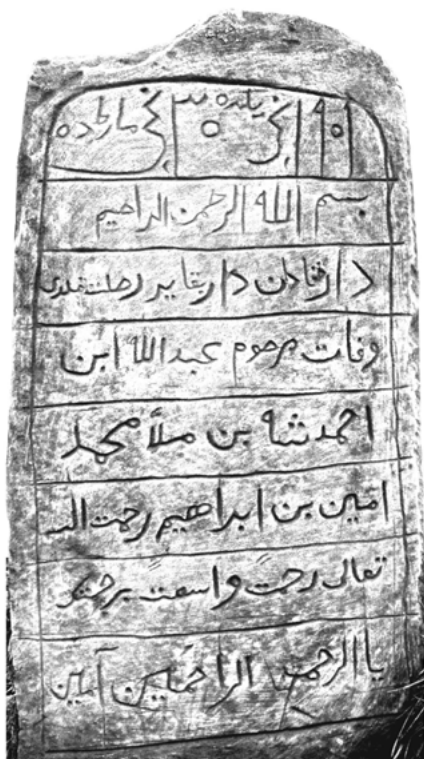 نچى يلده ٥ نچى مارطده
بسم الله الرحمن الراهيم
دارفنادن دار بقايه رحلت قلدى
وفات مرحوم عبد الله ابن
احمدشاه بن ملاً محمد
امين بن ابراهيم رحمت الله
تعالى رحمتً واسعتً
يا الرحمن الراحمين آمين